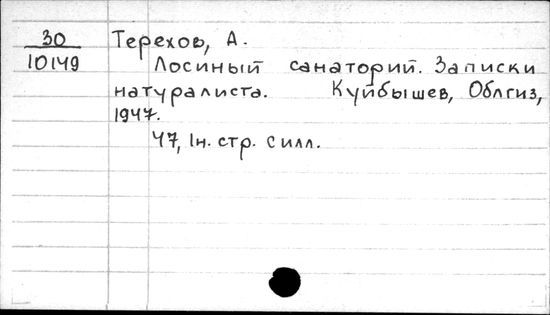 30
10149
Терехов, А.
Лосиный санаторий. Записки
натуралиста. Куйбышев, Облгиз,
1947.
47, 1н. стр. с илл.